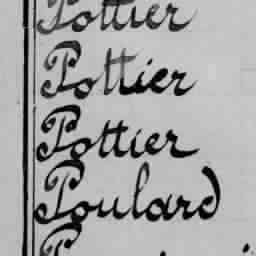 Pottier
Pottier
Pottier
Poulard